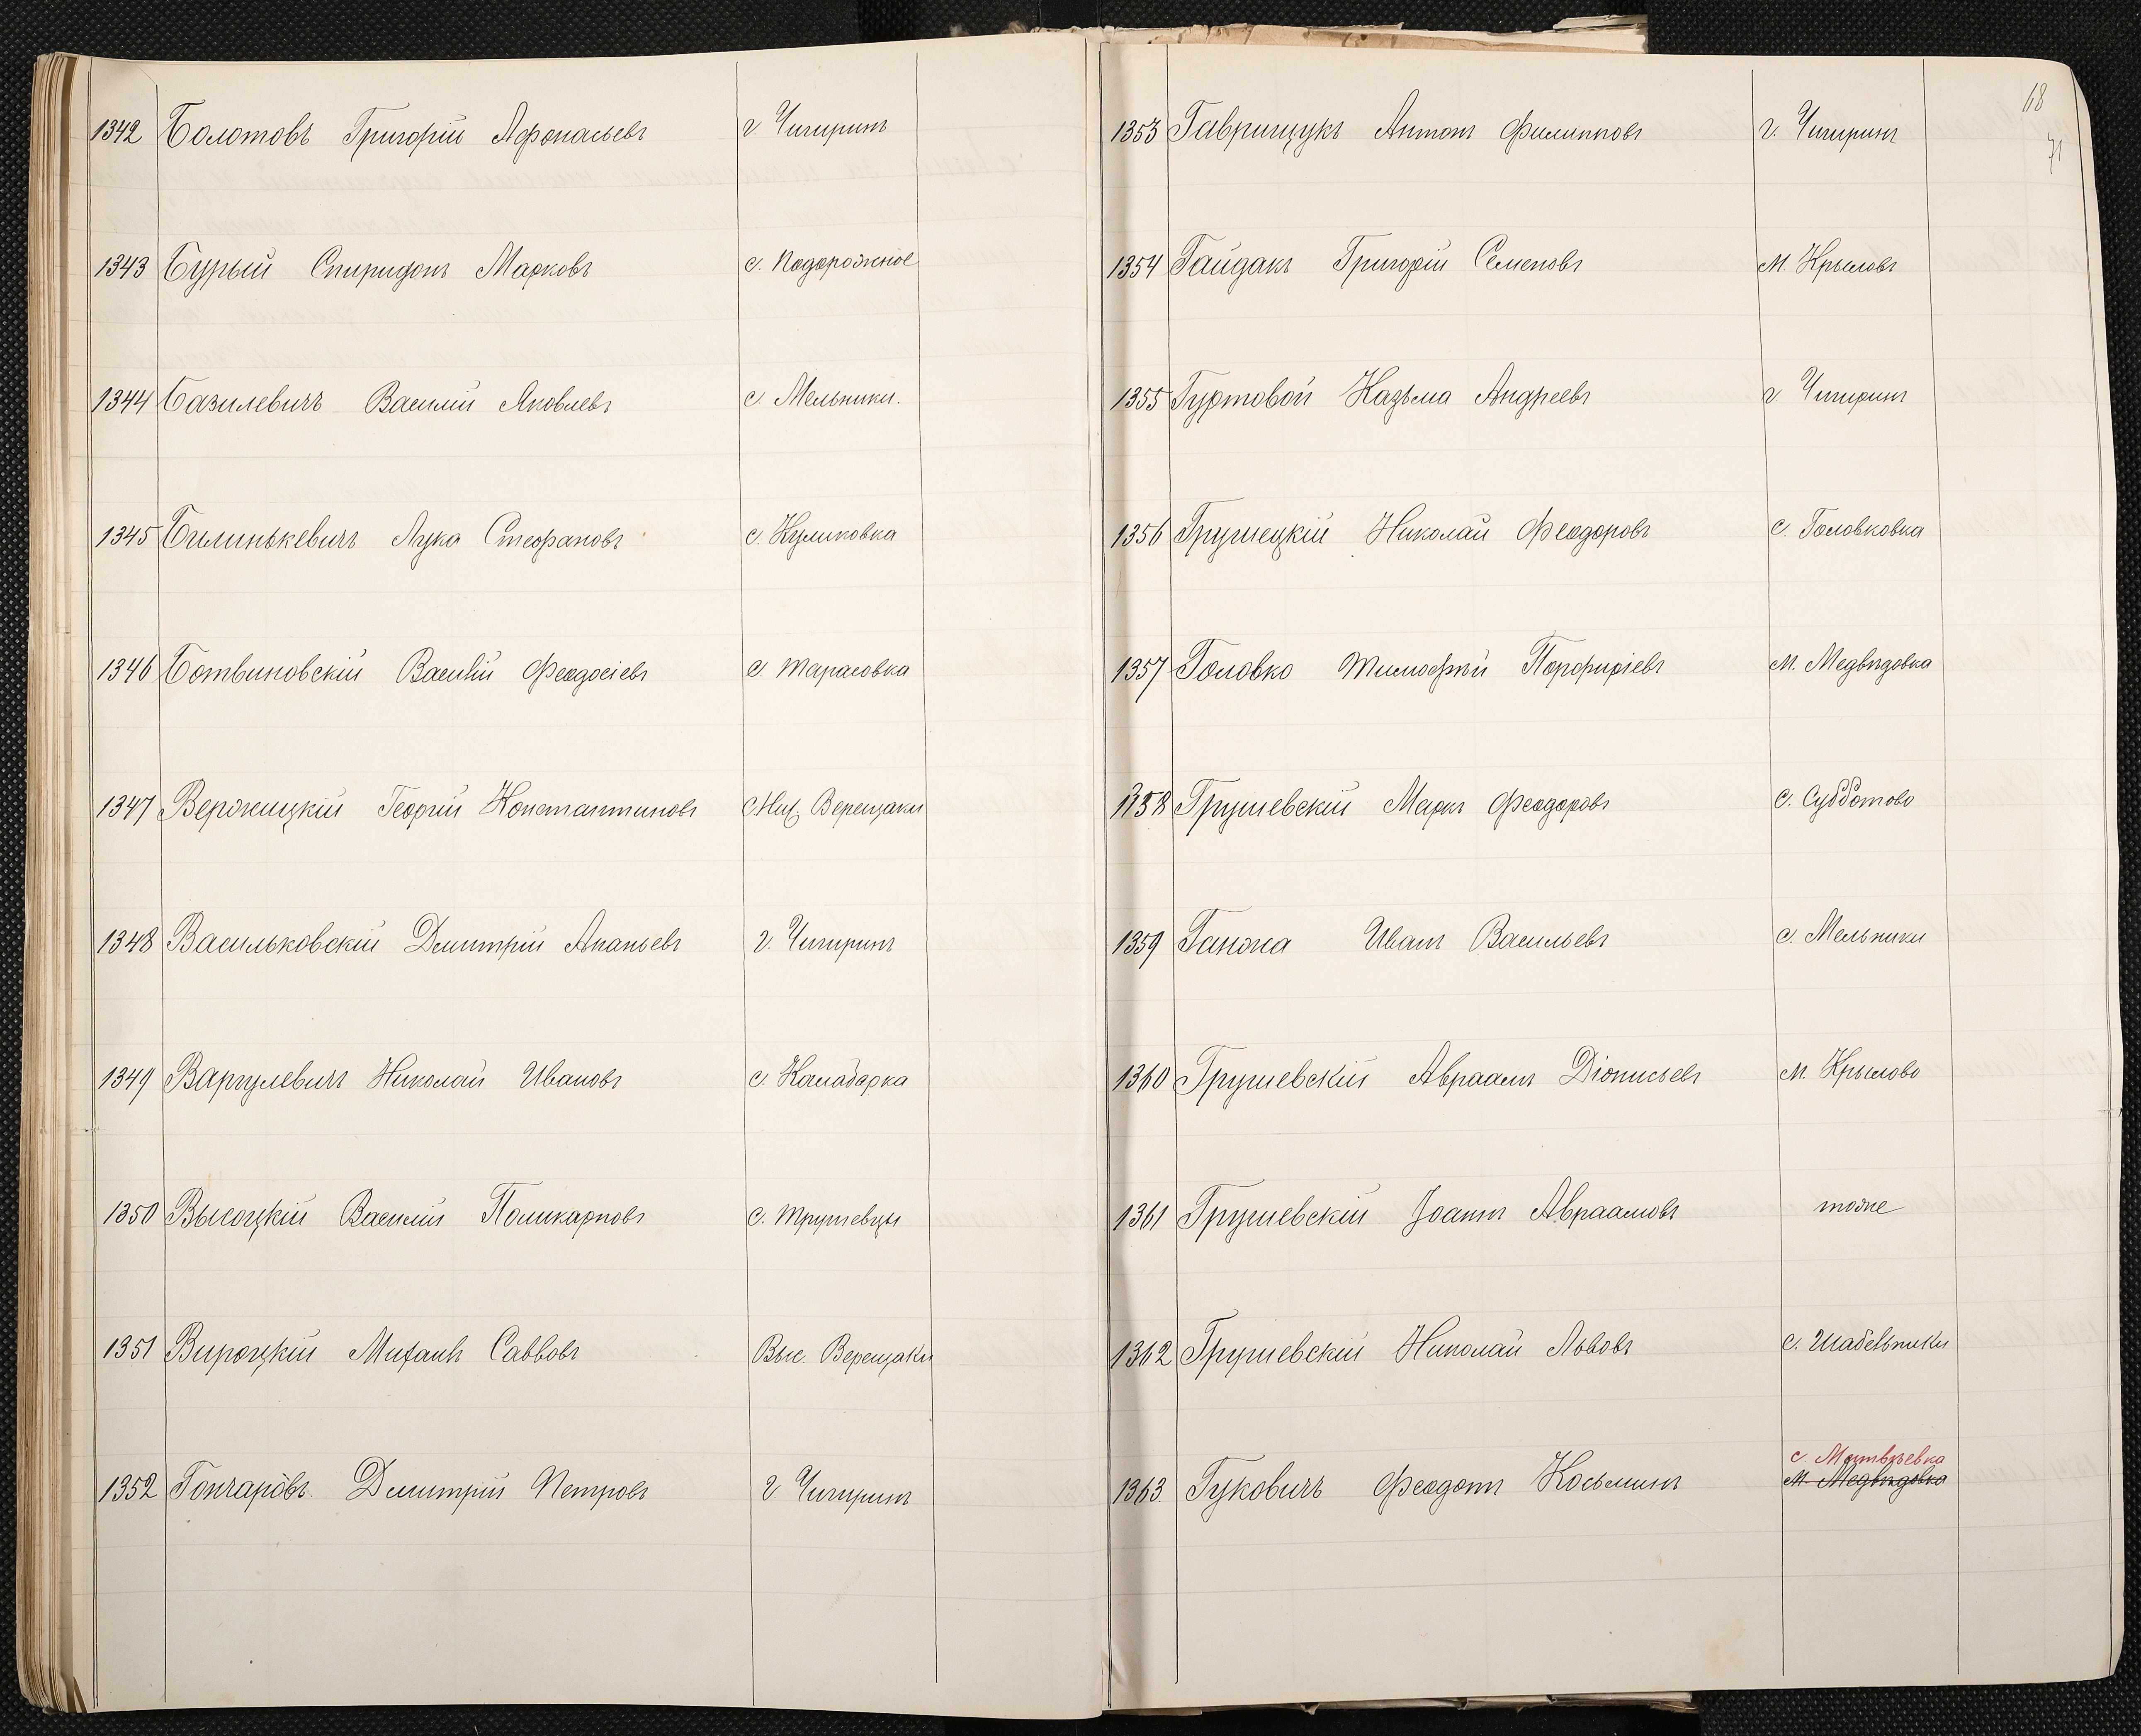 1342 Болотовъ Григорій Афонасьевъ г. Чигиринъ
1343 Бурый Спиридонъ Марковъ с. Подорожное
1344 Базилевичъ Василій Яковлевъ с. Мельники.
1345 Билинькевичъ Лука Стефановъ с. Куликовка
1346 Ботвиновскій Василій Феодосіевъ с. Тарасовка
1347 Вержицкій Георгій Константиновъ с. Ниж. Верещаки
1348 Васильковскій Дмитрій Ананьевъ г. Чигиринъ
1349 Варгулевичъ Николай Ивановъ с. Калабарка
1350 Высоцкій Василій Поликарповъ с. Трушевцы
1351 Вироцкій Михаилъ Саввовъ Выс. Верещаки
1352 Гончаровъ Дмитрій Петровъ г. Чигиринъ
68
71
1353 Гаврищукъ Антонъ Филипповъ г. Чигиринъ
1354 Гайдакъ Григорій Семеновъ м. Крыловъ
1355 Гуртовой Казьма Андреевъ г. Чигиринъ
1356 Грушецкій Николай Феодоровъ с. Головковка
1357 Головко Тимофѣй Порфиріевъ м. Медвѣдовка
1358 Грушевскій Маркъ Феодоровъ с. Субботово
1359 Ганжа Иванъ Васильевъ с. Мельники
1360 Грушевскій Авраамъ Діонисьевъ м. Крылово
1361 Грушевскій Іоаннъ Авраамовъ тоже
1362 Грушевскій Николай Львовъ с. Шабельники
с. Матвѣевка
1363 Гуковичъ Феодотъ Косьминъ м. Медвѣдовка